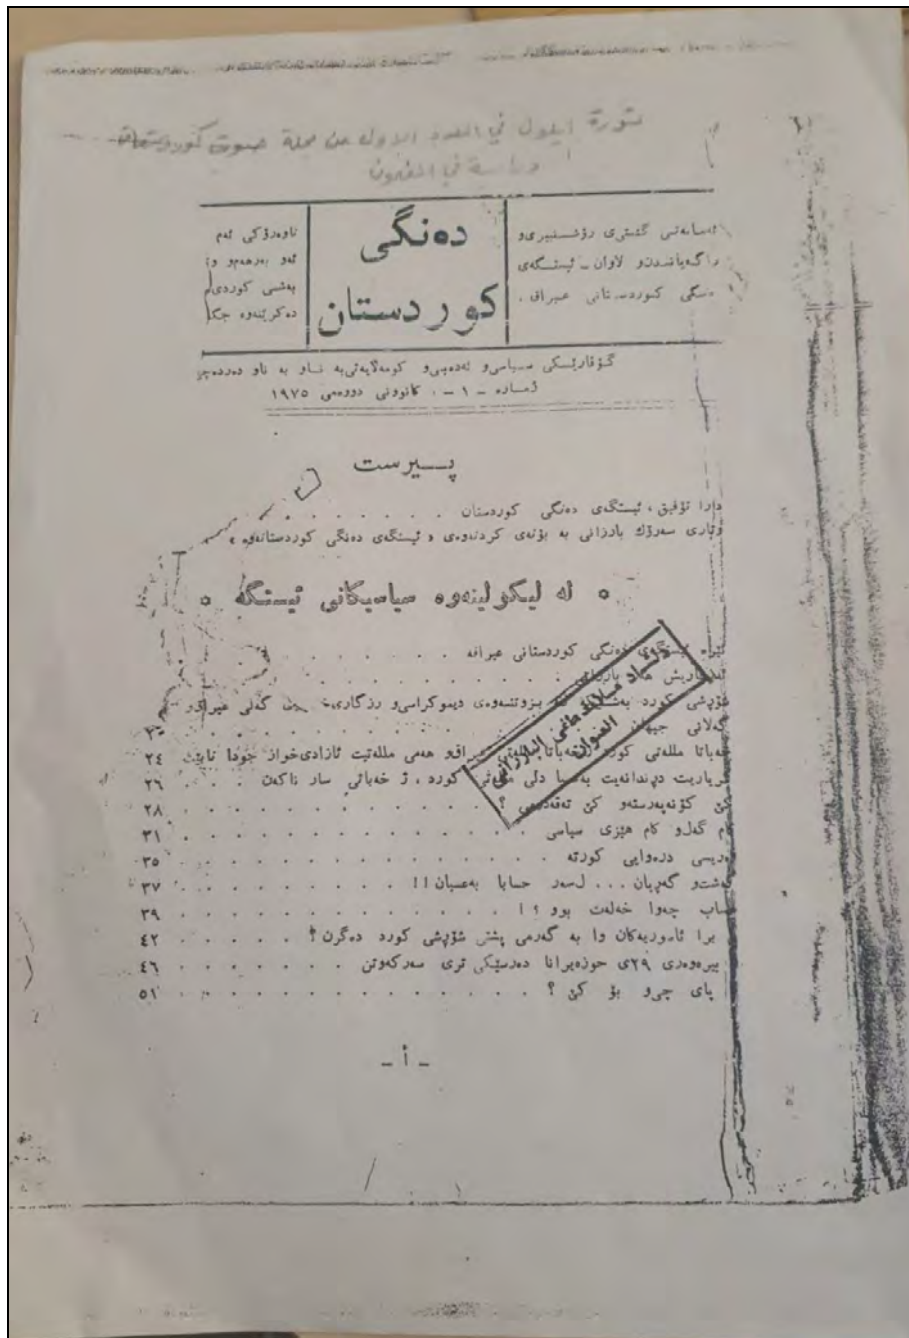 ثورة ايلول في العدد الاول من مجلة صوت كوردستان
دراسة في المضمون
ئەمانەتی گشتی رۆشنبیری و
راگەیاندن و لاوان ـ ئیستگەی
دەنگی کوردستانی عیراق .
دەنگی
کوردستان
ناوەرۆکی ئەم
ئەو بەرهەمو
بەشی کوردی
دەکرێنەوە جگ
گۆڤارێکی سیاسی و ئەدەبی و کۆمەڵایەتی بە ناو بە ناو دەردەچێ
ژمارە ـ ١ ـ ٠ کانوونی دووەمی ١٩٧٥
پـــیرست
دارا تۆفیق ، ئیستگەی دەنگی کوردستان . . . . . . .
وتاری سەرۆک بارزانی بە بۆنەی کردنەوەی « ئیستگەی دەنگی کوردستانەوە »
٥ لە لیکولینەوە سیاسیکانی ئیستگە ٥
ئێرە ئیستگەی دەنگی کوردستانی عیراقە . . . . . .
شۆڕشی کورد بەشێکە لە بزوتنەوەی دیموکراسی و رزگاری گەلی عیراق و
گەلانی جیهان
خەباتا مللەتی کورد ژ خەباتا هەمی مللەتیت ئازادی‌خواز جودا نابیت ٢٤
کریاریت دڕندانەیت بەعسیا دلی مللەتێ کورد ، ژ خەباتی سار ناکەن . . . ٢٦
کێ کۆنەپەرستەو کێ تەقەدومی ؟ . . . . . . . . ٢٨
کام گەل و کام هێزی سیاسی . . . . . . . . . ٣١
دەریسی درەوایی کورتە . . . . . . . . . ٣٥
گەشت و گەڕیان ... لسەر حسابا بەعسیان !! . . . . . . ٣٧
حساب چەوا خەلەت بوو ؟ ! . . . . . . . . ٣٩
برا ئاسوریەکان وا بە گەرمی پشتی شۆڕشی کورد دەگرن ؟ . . . . ٤٢
بیرەوەری ٢٩ی حوزەیرانا دەرسێکی تری سەرکەوتن . . . . . ٤٦
پای چی و بۆ کێ ؟ . . . . . . . . . . ٥١
ـ أ ـ